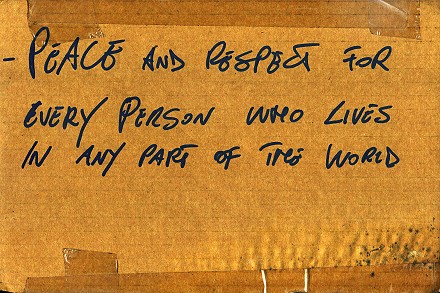 - PEACE AND RESPECT FOR
EVERY PERSON WHO LIVES
IN ANY PART OF THE WORLD